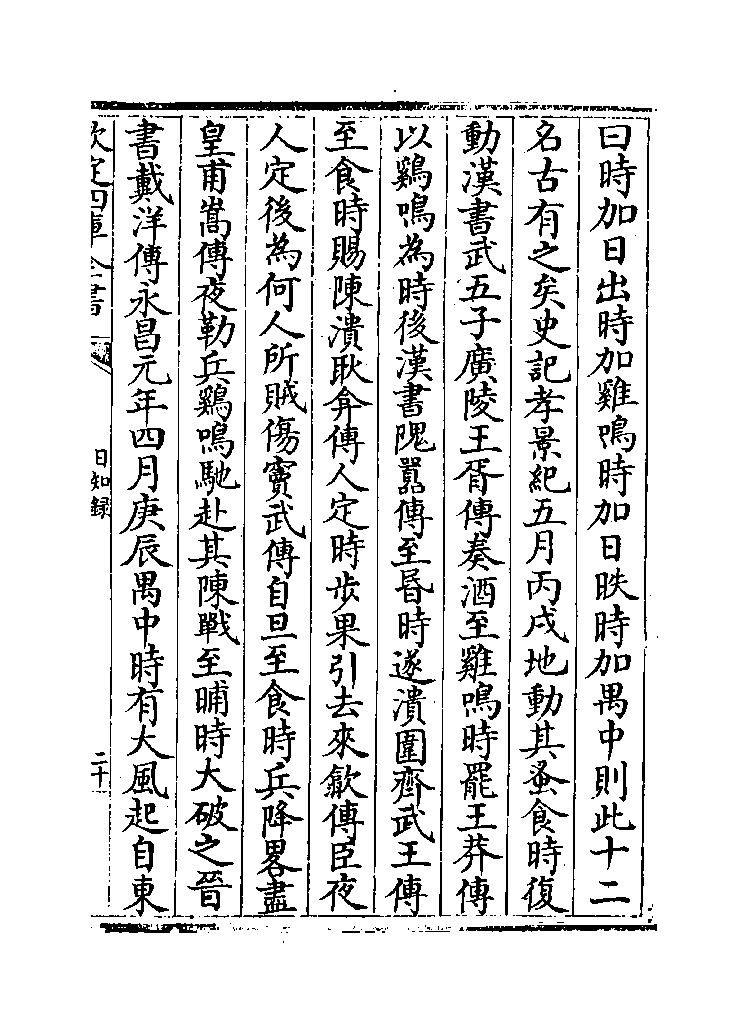 曰時加日出時加雞鳴時加日昳時加禺中則此十二
名古有之矣史記孝景紀五月丙戌地動其蚤食時復
動漢書武五子廣陵王胥傳奏酒至雞鳴時罷王莽傳
以鷄鳴為時後漢書隗囂傳至昏時遂潰圍齊武王傳
至食時賜陳潰耿弇傳人定時步果引去來歙傳臣夜
人定後為何人所賊傷竇武傳自旦至食時兵降畧盡
皇甫嵩傳夜勒兵鷄鳴馳赴其陳戰至晡時大破之晉
書戴洋傳永昌元年四月庚辰禺中時有大風起自東
欽定四庫全書
日知錄
二十